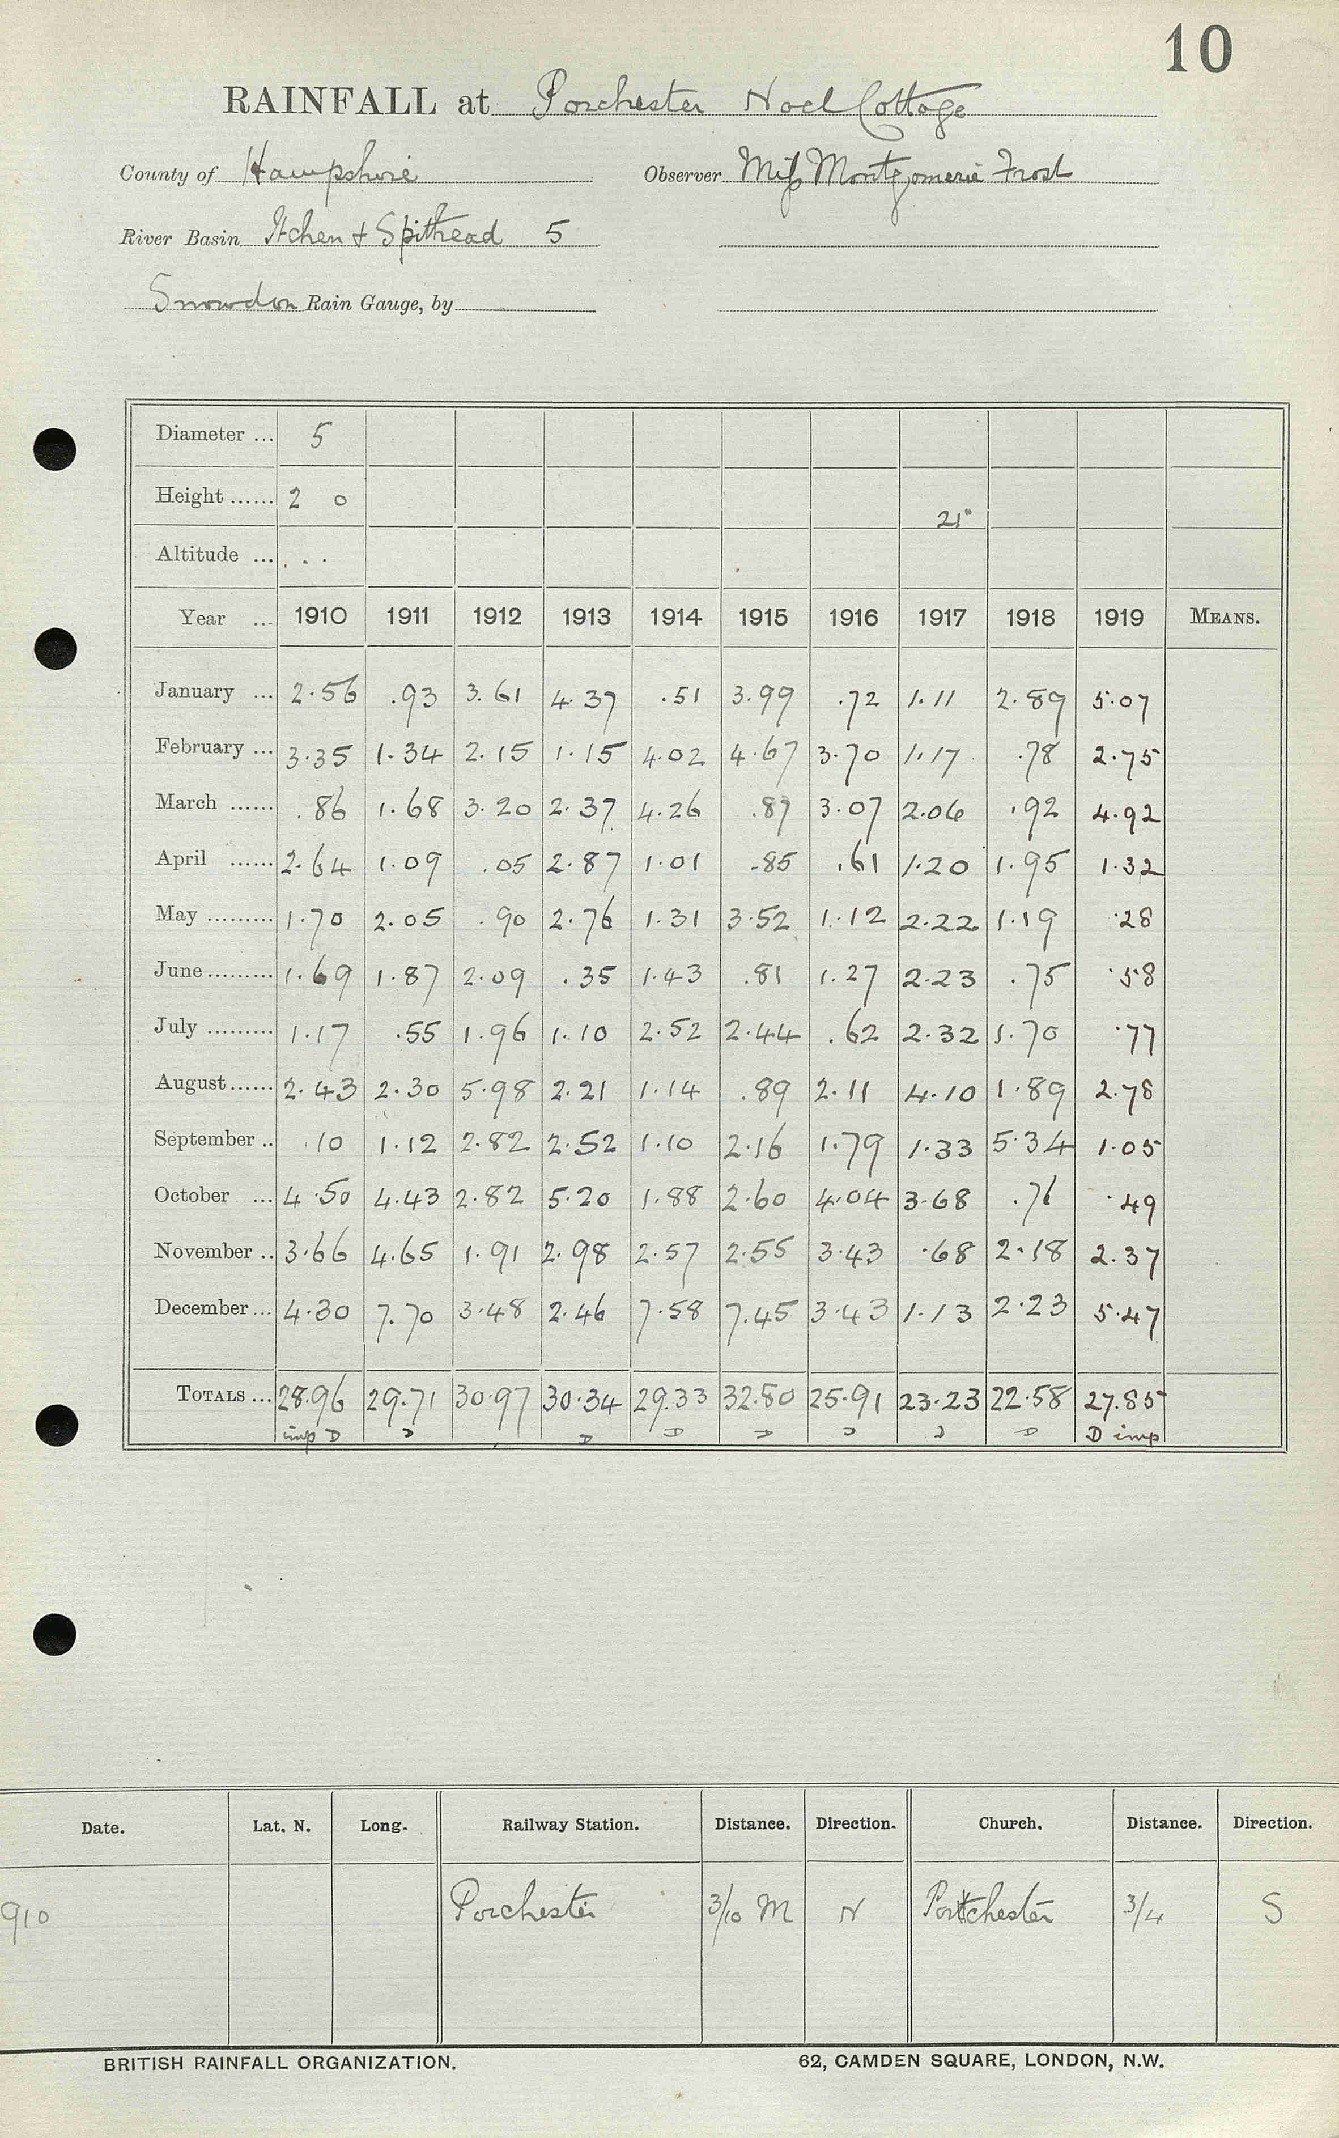 10
RAINFALL at Porchester Noel Cottage
County of Hampshire Observer Miss Montgomerie Frost
River Basin Itchen + Spithead 5
Snowdon Rain Gauge, by
Diameter ... 5
Height ...... 2 0 21"
Altitude ... . . .
Year ... 1910 1911 1912 1913 1914 1915 1916 1917 1918 1919 MEANS.
January ... 2.56 .93 3.61 4.37 .51 3.99 .72 1.11 2.89 5.07
February ... 3.35 1.34 2.15 1.15 4.02 4.67 3.70 1.17 .78 2.75
March ...... .86 1.68 3.20 2.37 4.26 .87 3.07 2.06 .92 4.92
April ...... 2.64 1.09 .05 2.87 1.01 .85 .61 1.20 1.95 1.32
May ......... 1.70 2.05 .90 2.76 1.31 3.52 1.12 2.22 1.19 .28
June ......... 1.69 1.87 2.09 .35 1.43 .81 1.27 2.23 .75 .58
July ......... 1.17 .55 1.96 1.10 2.52 2.44 .62 2.32 1.70 .77
August ...... 2.43 2.30 5.98 2.21 1.14 .89 2.11 4.10 1.89 2.78
September .. .10 1.12 2.82 2.52 1.10 2.16 1.79 1.33 5.34 1.05
October ... 4.50 4.43 2.82 5.20 1.88 2.60 4.04 3.68 .76 .49
November .. 3.66 4.65 1.91 2.98 2.57 2.55 3.43 .68 2.18 2.37
December ... 4.30 7.70 3.48 2.46 7.58 7.45 3.43 1.13 2.23 5.47
TOTALS ... 28.96 29.71 30.97 30.34 29.33 32.80 25.91 23.23 22.58 27.85
imp D D D D D D D D D imp
Date. Lat. N. Long. Railway Station. Distance. Direction. Church. Distance. Direction.
910 Porchester 3/10 M N Portchester 3/4 S
BRITISH RAINFALL ORGANIZATION. 62, CAMDEN SQUARE, LONDON, N.W.